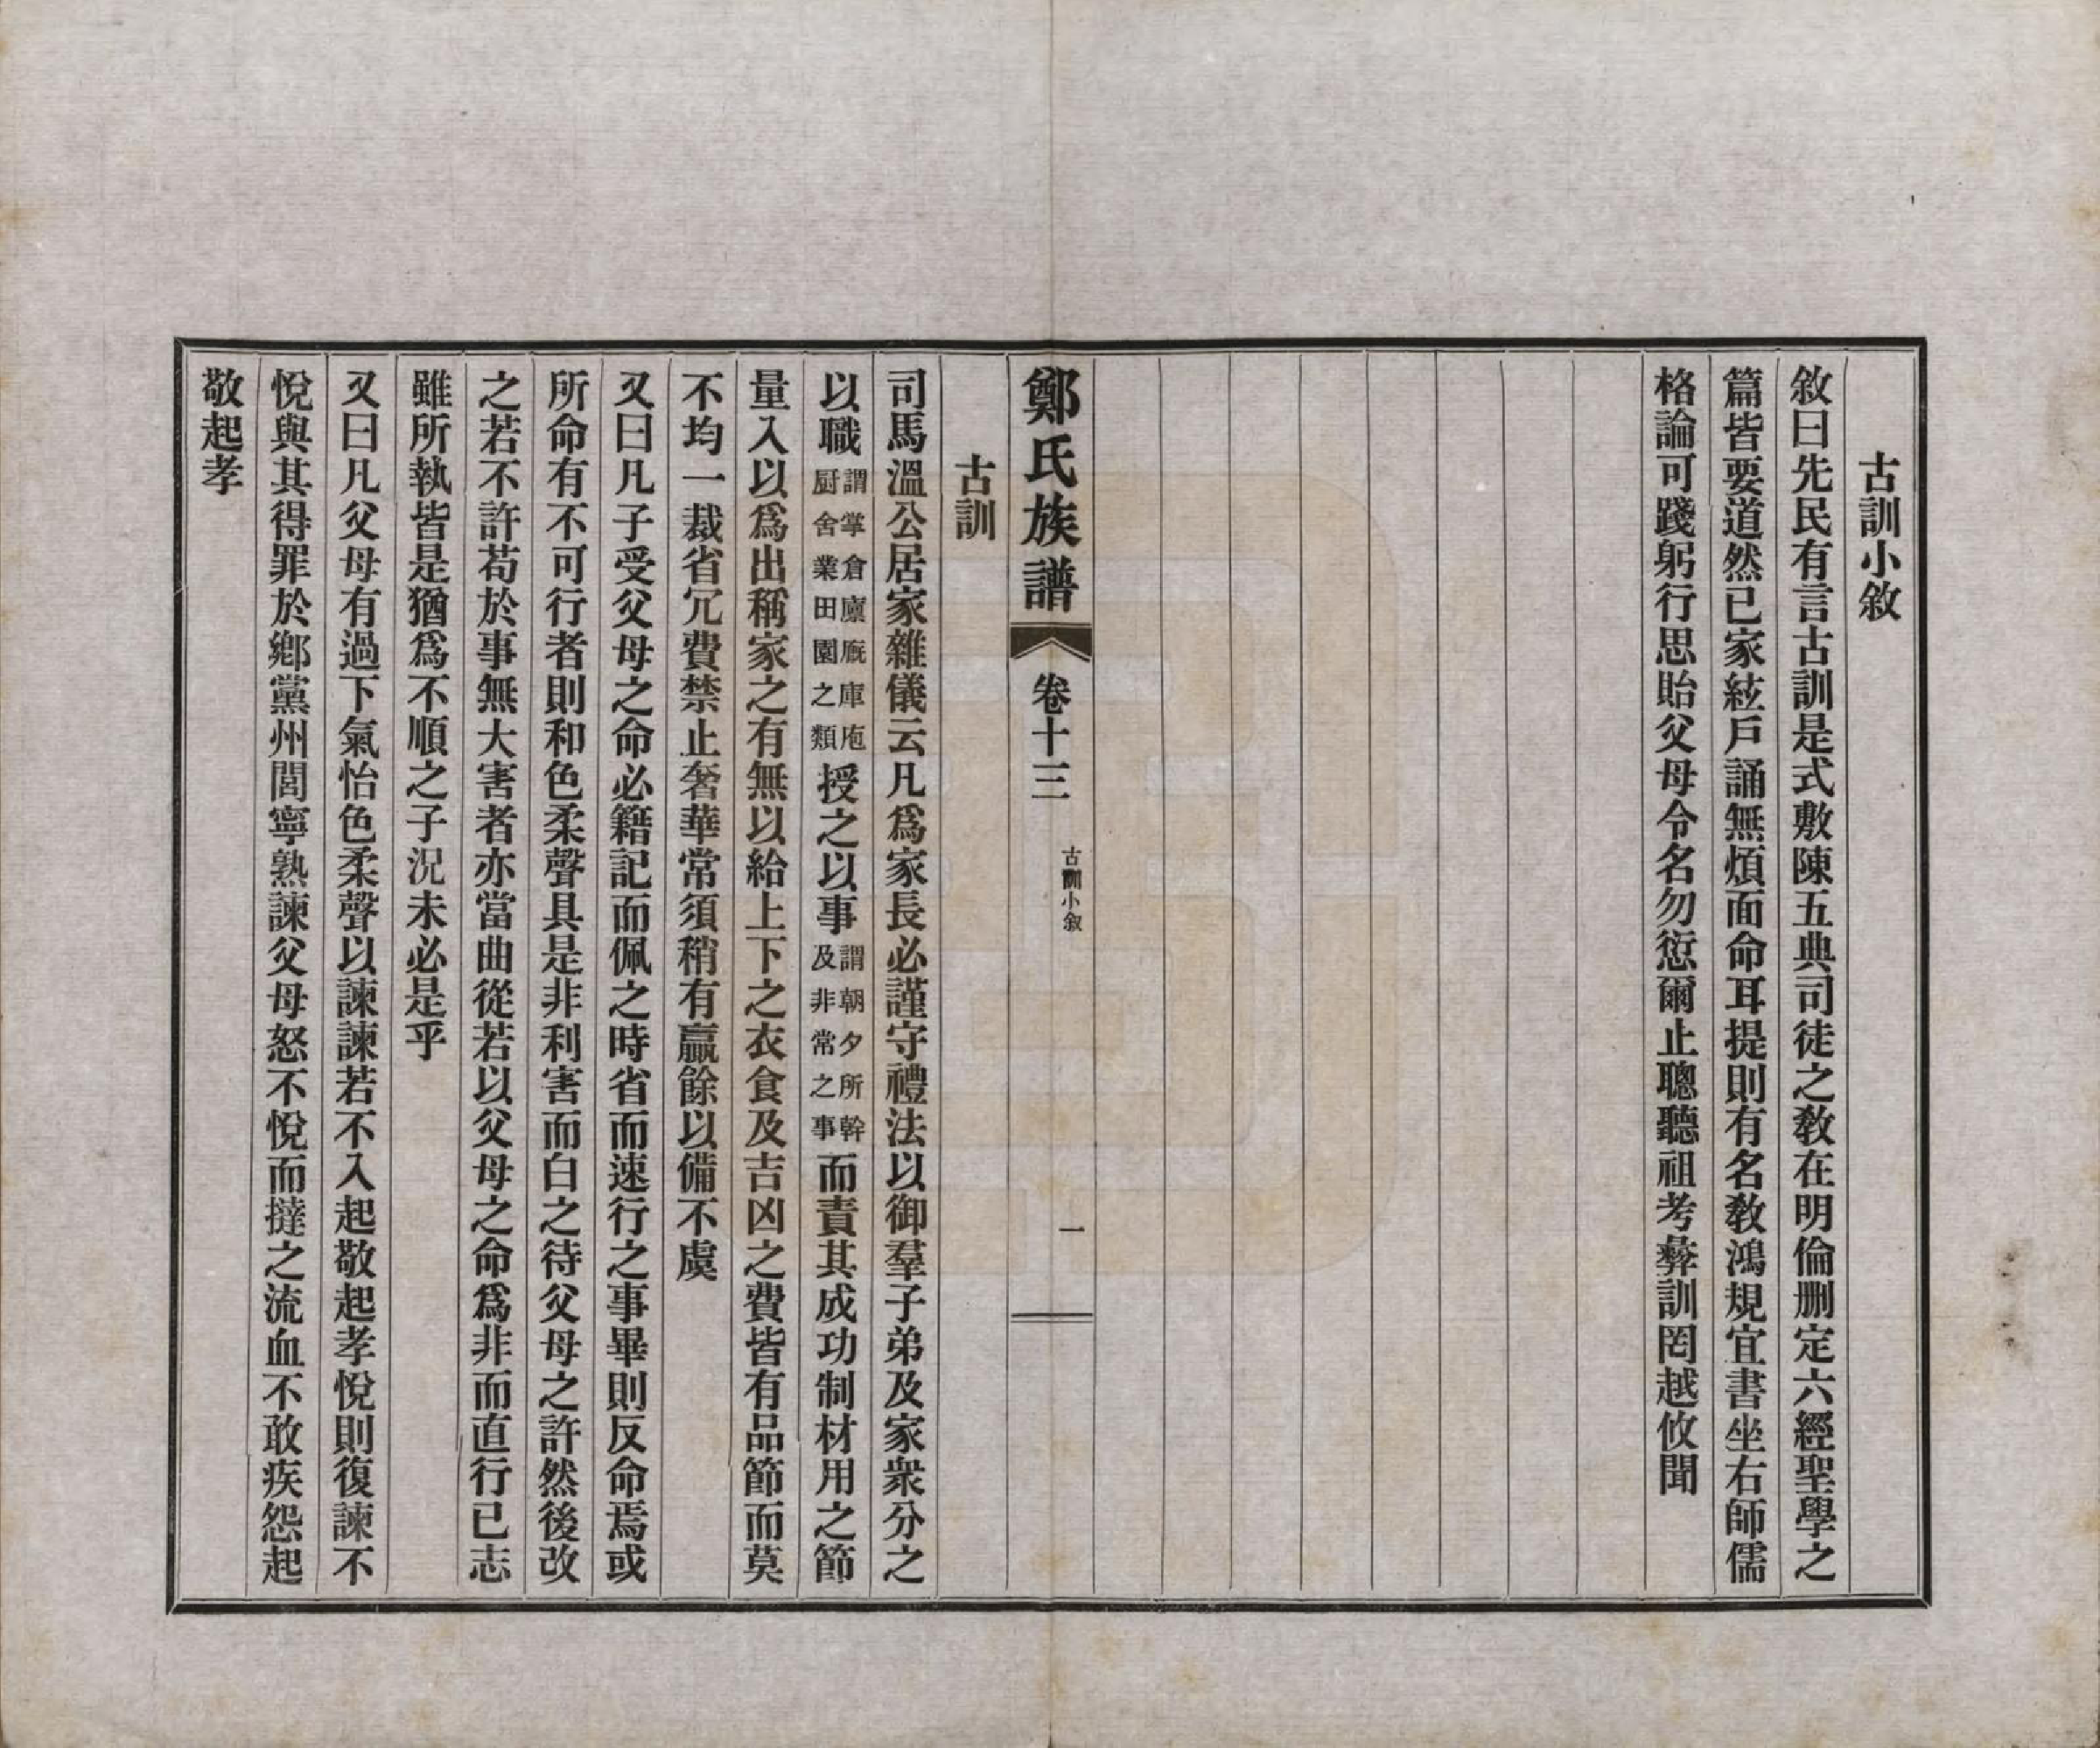 古訓小敘
敘曰先民有言古訓是式敷陳五典司徒之敎在明倫删定六經聖學之
篇皆要道然已家絃戶誦無煩面命耳提則有名敎鴻規宜書坐右師儒
格論可踐躬行思貽父母令名勿愆爾止聰聽祖考彝訓罔越攸聞
鄭氏族譜
卷十三
古訓小敘
一
古訓
司馬溫公居家雜儀云凡爲家長必謹守禮法以御羣子弟及家衆分之
以職謂掌倉廩廐庫庖厨舍業田園之類授之以事謂朝夕所幹及非常之事而責其成功制材用之節
量入以爲出稱家之有無以給上下之衣食及吉凶之費皆有品節而莫
不均一裁省冗費禁止奢華常須稍有贏餘以備不虞
又曰凡子受父母之命必籍記而佩之時省而速行之事畢則反命焉或
所命有不可行者則和色柔聲具是非利害而白之待父母之許然後改
之若不許苟於事無大害者亦當曲從若以父母之命爲非而直行已志
雖所執皆是猶爲不順之子況未必是乎
又曰凡父母有過下氣怡色柔聲以諫諫若不入起敬起孝悅則復諫不
悅與其得罪於鄉黨州閭寧熟諫父母怒不悅而撻之流血不敢疾怨起
敬起孝